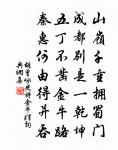 山嶺千重擁蜀門
成都別是一乾坤
五丁不鑿金牛路
秦惠何由得并吞
胡曾詠史詩金牛驛